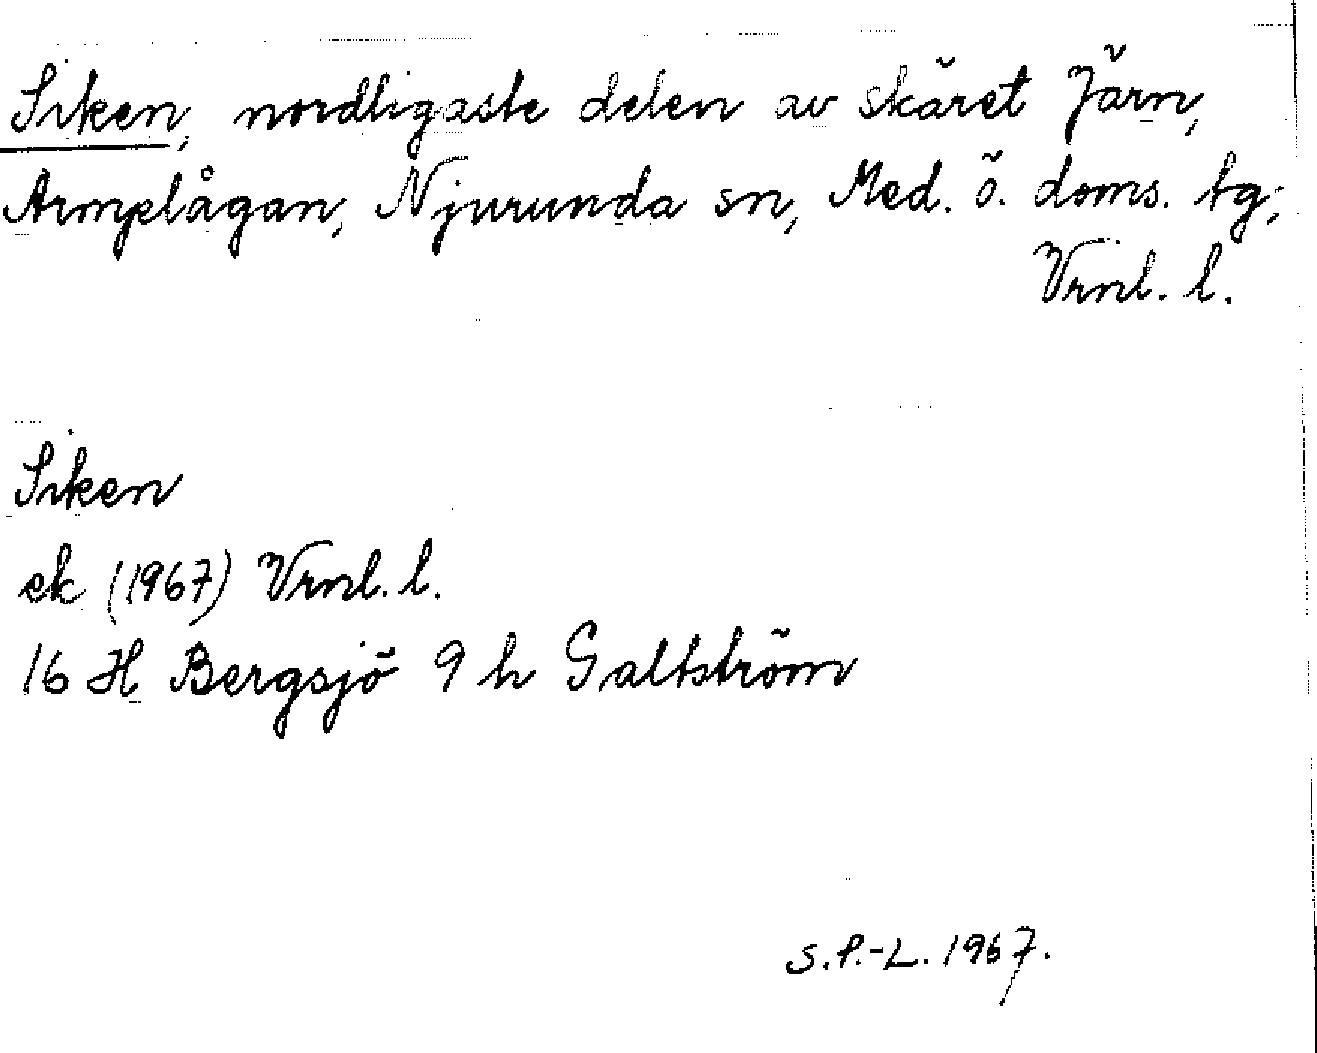 Siken, nordligaste delen av skäret Järn,
Armplågan, Njurunda sn, Med. ö. doms. tg;
Vrnl. l.
Siken
ek (1967) Vrnl. l.
16 H Bergsjö 9 h Galtström
S.P.-L. 1967.